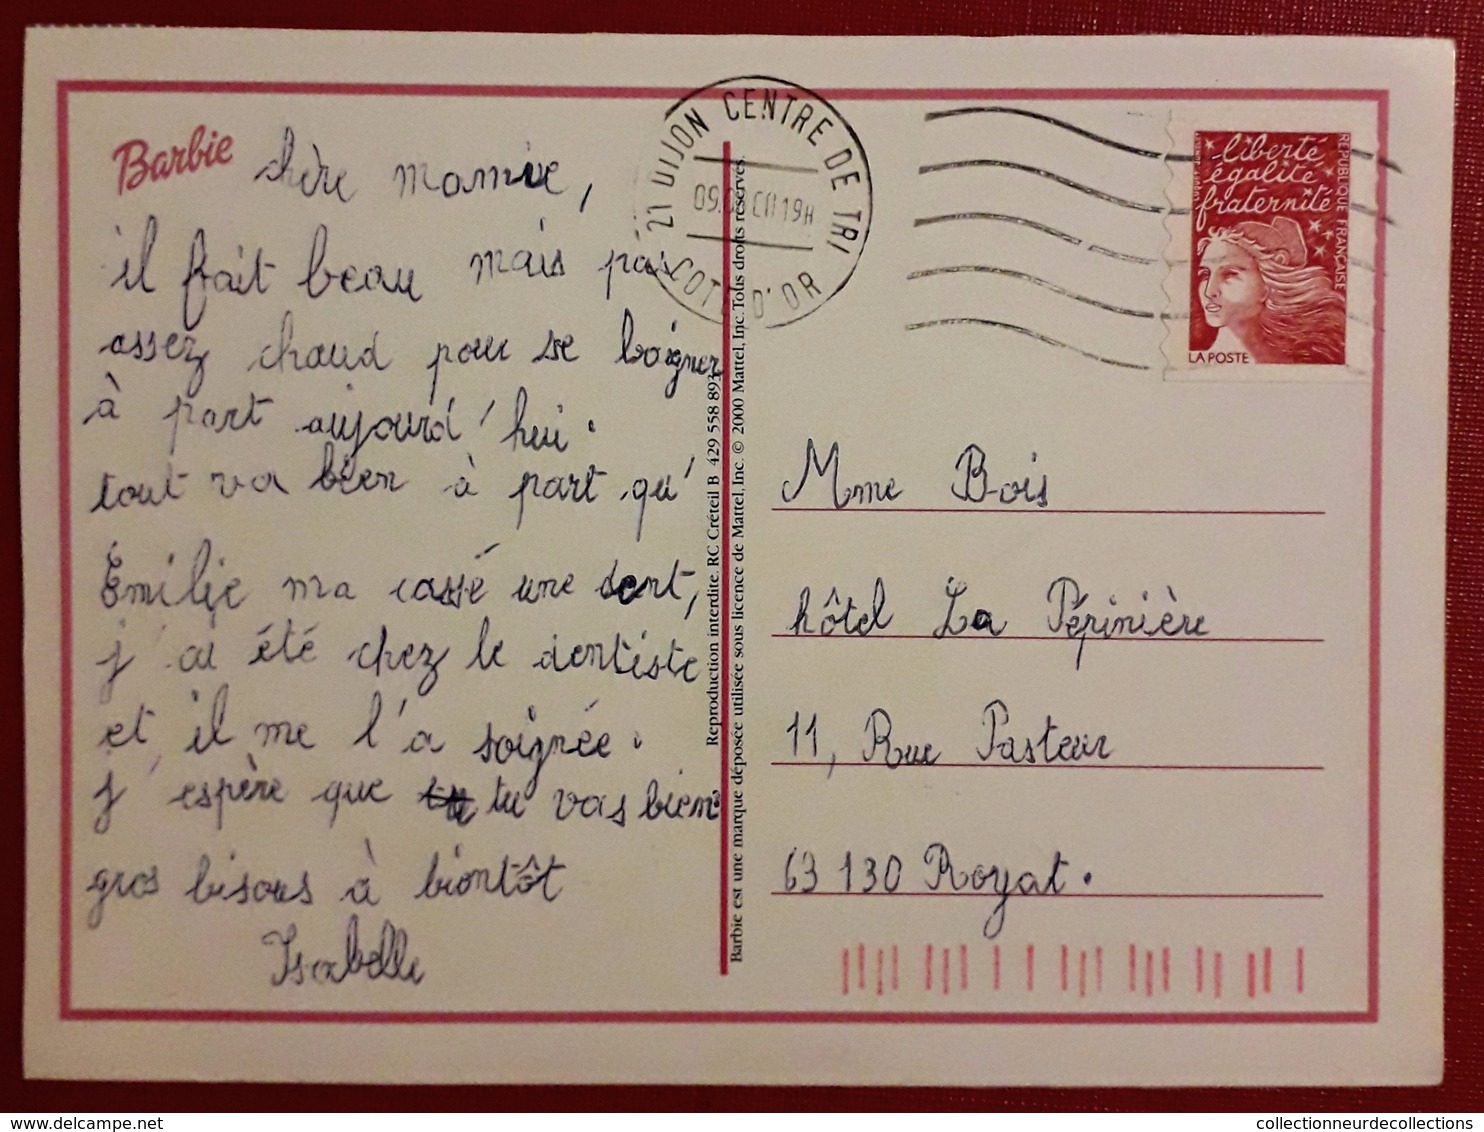 Barbie
chère mamie,
il fait beau mais pas
assez chaud pour se baigner
à part aujourd'hui.
tout va bien à part qu'
Emilie ma cassé une dent,
j'ai été chez le dentiste
et il me l'a soignée.
j'espère que tu vas bien
gros bisous à bientôt
Isabelle
Reproduction interdite. RC Créteil B 429 558 893
Barbie est une marque déposée utilisée sous licence de Mattel, Inc. © 2000 Mattel, Inc. Tous droits réservés.
21 DIJON CENTRE DE TRI
19H
COTE D'OR
liberté
égalité
fraternité
REPUBLIQUE FRANÇAISE
LA POSTE
Mme Bois
hôtel La Pépinière
11, Rue Pasteur
63130 Royat.
collectionneurdecollections